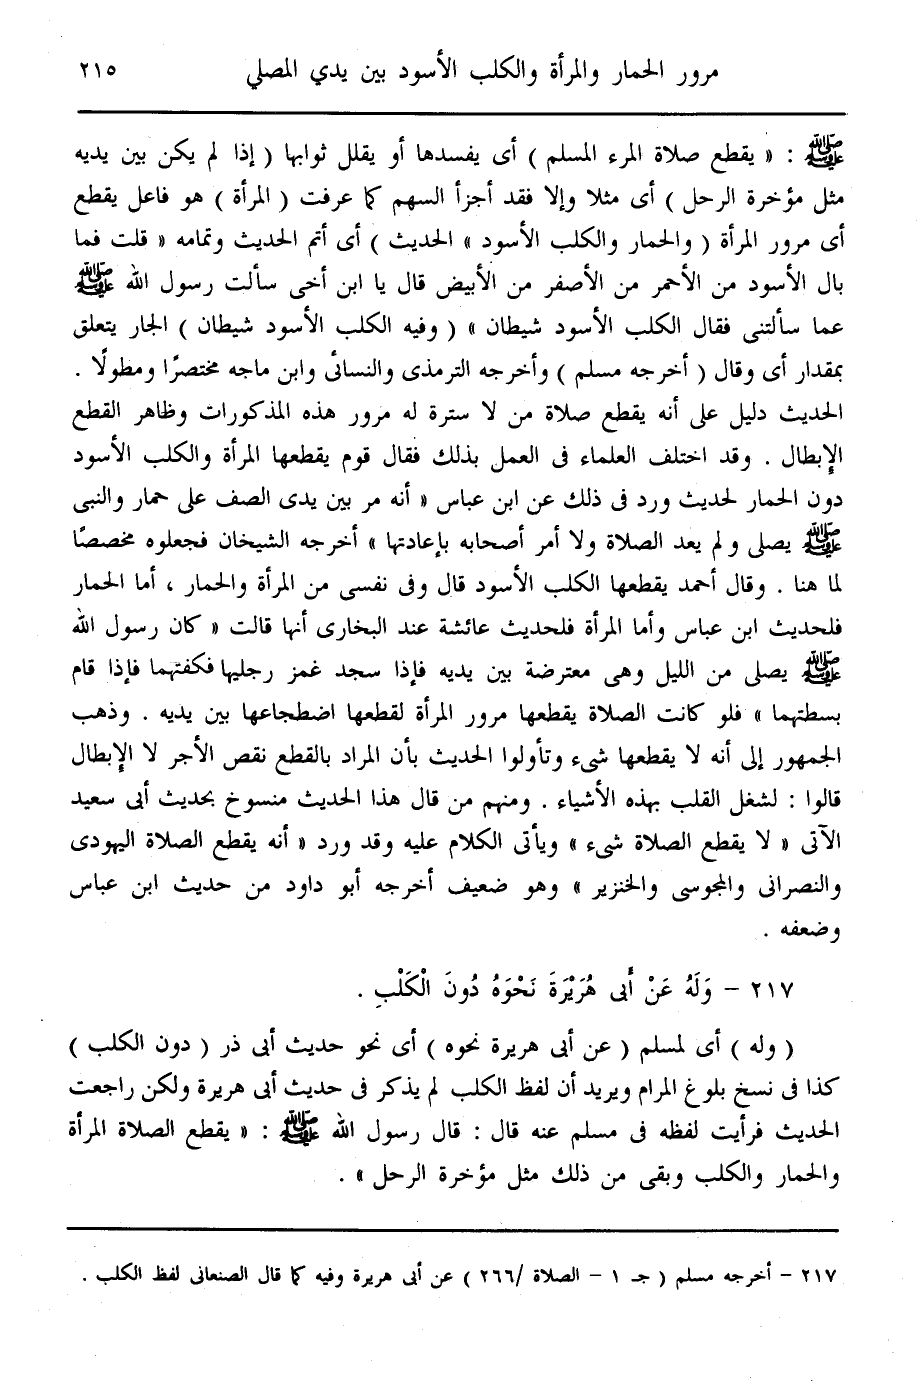 مرور الحمار والمرأة والكلب الأسود بين يدي المصلي ٢١٥
ﷺ : « يقطع صلاة المرء المسلم ) أى يفسدها أو يقلل ثوابها ( إذا لم يكن بين يديه
مثل مؤخرة الرحل ) أى مثلا وإلا فقد أجزأ السهم كما عرفت ( المرأة ) هو فاعل يقطع
أى مرور المرأة ( والحمار والكلب الأسود » الحديث ) أى أتم الحديث وتمامه « قلت فما
بال الأسود من الأحمر من الأصفر من الأبيض قال يا ابن أخى سألت رسول الله ﷺ
عما سألتنى فقال الكلب الأسود شيطان » ( وفيه الكلب الأسود شيطان ) الجار يتعلق
بمقدار أى وقال ( أخرجه مسلم ) وأخرجه الترمذى والنسائى وابن ماجه مختصرًا ومطولًا .
الحديث دليل على أنه يقطع صلاة من لا سترة له مرور هذه المذكورات وظاهر القطع
الإبطال . وقد اختلف العلماء فى العمل بذلك فقال قوم يقطعها المرأة والكلب الأسود
دون الحمار لحديث ورد فى ذلك عن ابن عباس « أنه مر بين يدى الصف على حمار والنبى
ﷺ يصلى ولم يعد الصلاة ولا أمر أصحابه بإعادتها » أخرجه الشيخان فجعلوه مخصصًا
لما هنا . وقال أحمد يقطعها الكلب الأسود قال وفى نفسى من المرأة والحمار ، أما الحمار
فلحديث ابن عباس وأما المرأة فلحديث عائشة عند البخارى أنها قالت « كان رسول الله
ﷺ يصلى من الليل وهى معترضة بين يديه فإذا سجد غمز رجليها فكفتهما فإذا قام
بسطتهما » فلو كانت الصلاة يقطعها مرور المرأة لقطعها اضطجاعها بين يديه . وذهب
الجمهور إلى أنه لا يقطعها شىء وتأولوا الحديث بأن المراد بالقطع نقص الأجر لا الإبطال
قالوا : لشغل القلب بهذه الأشياء . ومنهم من قال هذا الحديث منسوخ بحديث أبى سعيد
الآتى « لا يقطع الصلاة شىء » ويأتى الكلام عليه وقد ورد « أنه يقطع الصلاة اليهودى
والنصرانى والمجوسى والخنزير » وهو ضعيف أخرجه أبو داود من حديث ابن عباس
وضعفه .
٢١٧ - وَلَهُ عَنْ أَبى هُرَيْرَةَ نَحْوَهُ دُونَ الْكَلْبِ .
( وله ) أى لمسلم ( عن أبى هريرة نحوه ) أى نحو حديث أبى ذر ( دون الكلب )
كذا فى نسخ بلوغ المرام ويريد أن لفظ الكلب لم يذكر فى حديث أبى هريرة ولكن راجعت
الحديث فرأيت لفظه فى مسلم عنه قال : قال رسول الله ﷺ : « يقطع الصلاة المرأة
والحمار والكلب وبقى من ذلك مثل مؤخرة الرحل » .
٢١٧ - أخرجه مسلم ( جـ ١ - الصلاة /٢٦٦ ) عن أبى هريرة وفيه كما قال الصنعانى لفظ الكلب .